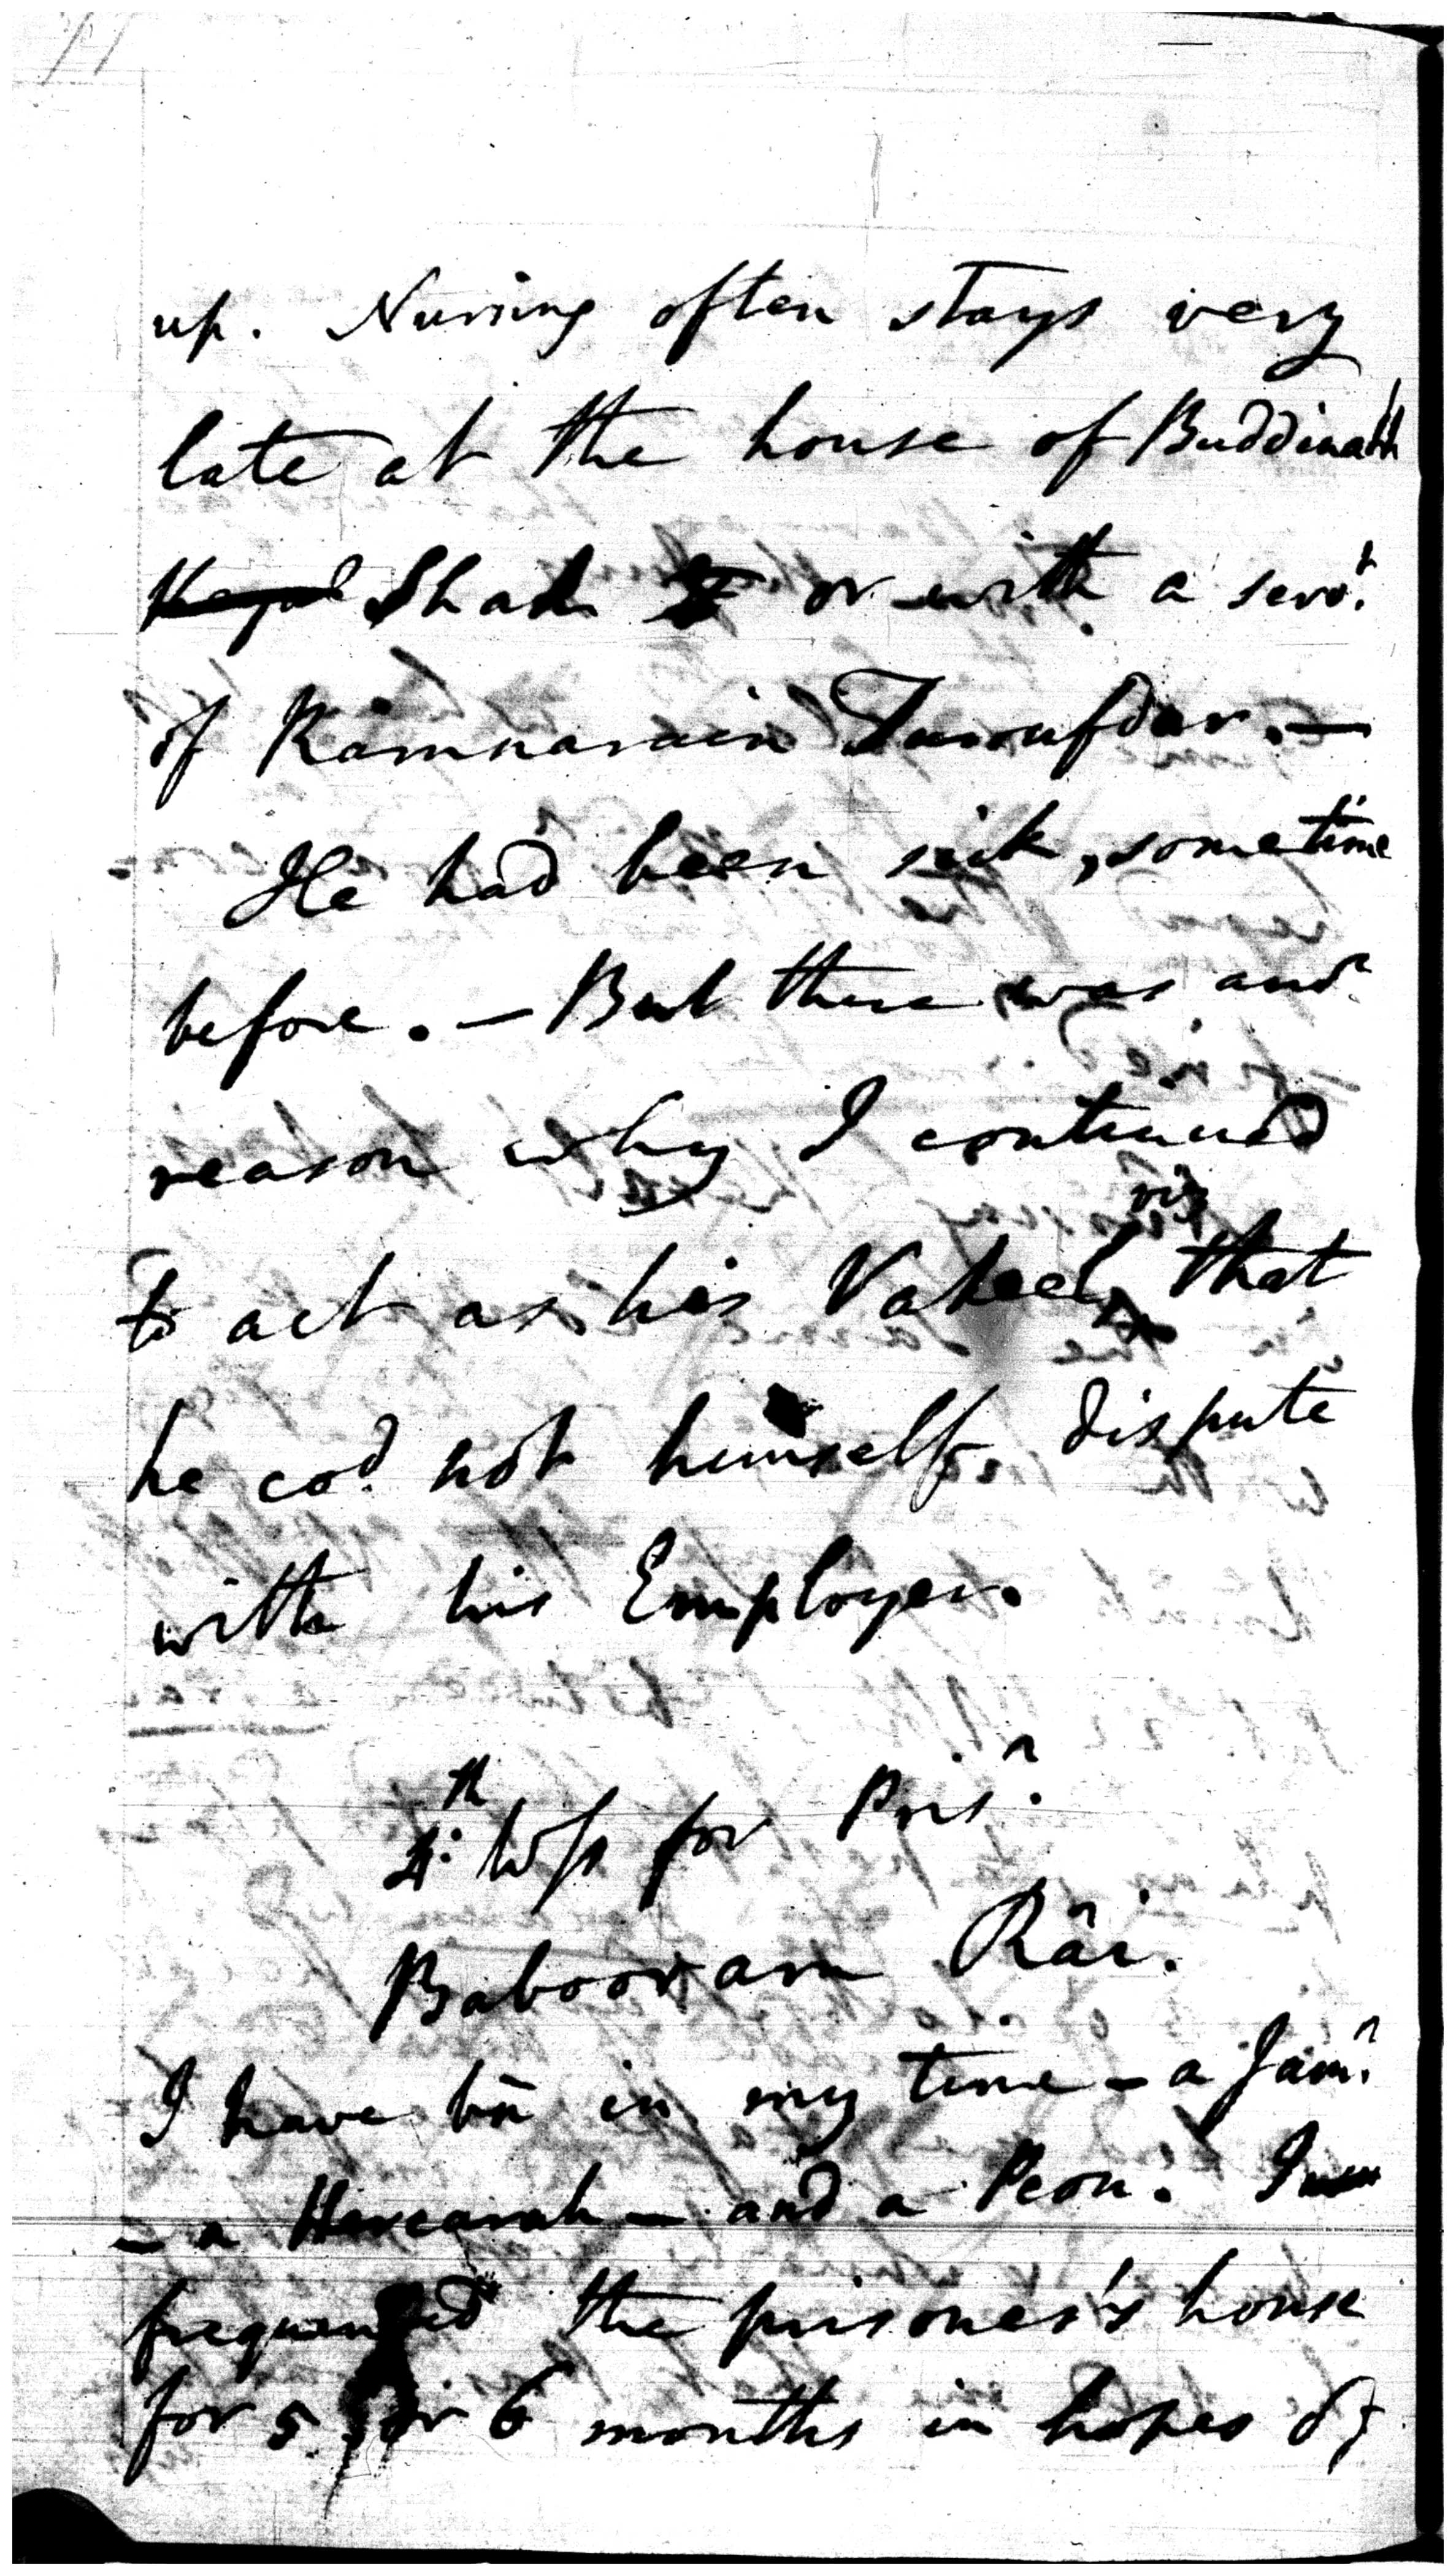 up. Nursing often stays very
late at the house of Buddinath
Shah or with a serv.t
of Râmnarain Turoufdar. —
He had been sick, sometime
before. — But there was and.r
reason why I continued
viz
to act as his Vakeel, that
he co.d not himself dispute
with his Employer.
4.th Wss for Pris.r
Babooram Râi.
I have bn in my time — a Jam.r
— a Hircarah — and a Peon. I
frequented the prisoner's house
for 5 or 6 months in hopes of